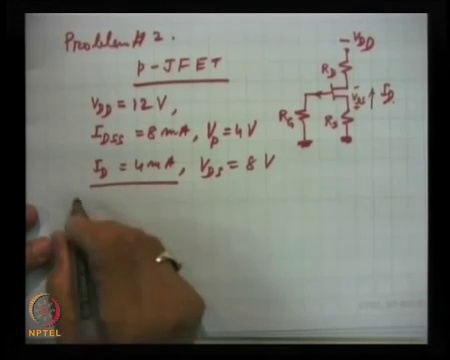 Problem # 2.
p-JFET
V_DD = 12 V,
I_DSS = 8 mA, V_p = 4 V
I_D = 4 mA, V_DS = 8 V
- V_DD
R_D
V_DS
I_D.
R_G
R_S
NPTEL